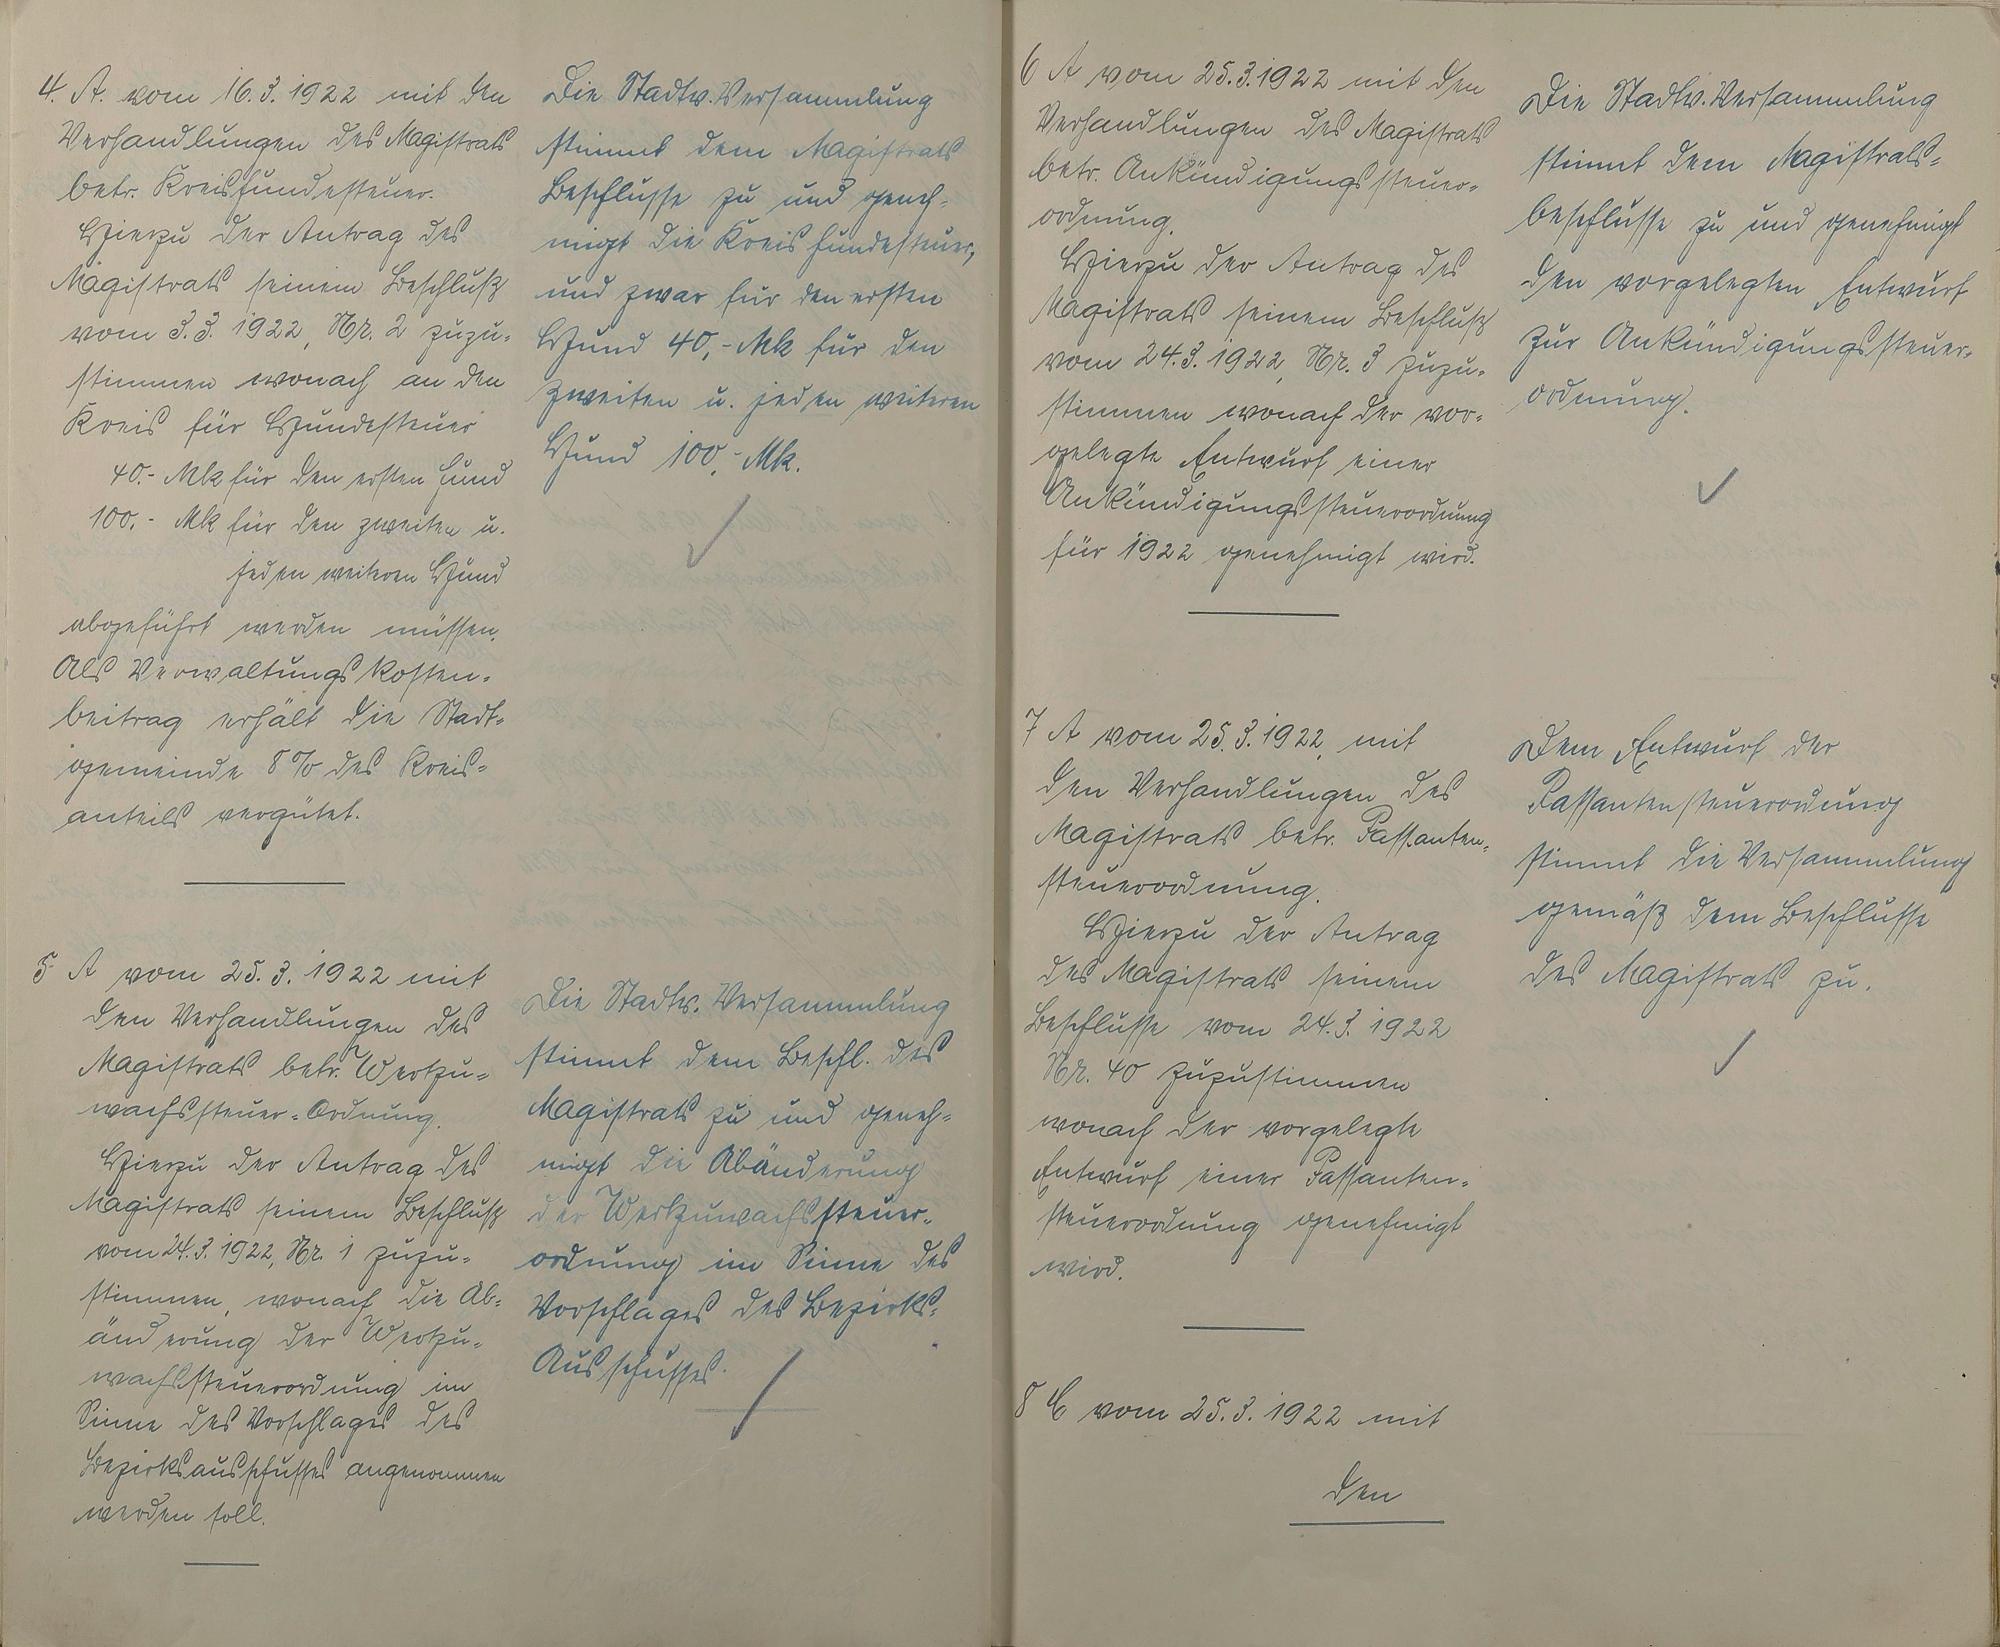 4. A. vom 16.3.1922 mit den
Verhandlungen des Magistrats
betr. Kreishundesteuer.
Hierzu der Antrag des
Magistrats seinem Beschluß
vom 3.3.1922, Nr. 2 zuzu-
stimmen wonach an den
Kreis für Hundesteuer
40.- Mk für den ersten Hund
100.- Mk für den zweiten u.
jeden weiteren Hund
abgeführt werden müssen.
Als Verwaltungskosten-
beitrag erhält die Stadt-
gemeinde 8% des Kreis-
anteils vergütet.
Die Stadtv. Versammlung
stimmt dem Magistrats
Beschlusse zu und geneh-
migt die Kreishundesteuer,
und zwar für den ersten
Hund 40,- Mk für den
zweiten u. jeden weiteren
Hund 100,- Mk.
5 A vom 25.3.1922 mit
den Verhandlungen des
Magistrats betr. Wertzu-
wachssteuer-Ordnung.
Hierzu der Antrag des
Magistrats seinem Beschluß
vom 24.3.1922, Nr. 1 zuzu-
stimmen, wonach die Ab-
änderung der Wertzu-
wachssteuerordnung im
Sinne des Vorschlages des
Bezirksausschusses angenommen
werden soll.
Die Stadtv. Versammlung
stimmt dem Beschl. des
Magistrats zu und geneh-
migt die Abänderung
der Wertzuwachssteuer-
ordnung im Sinne des
Vorschlages des Bezirks-
Ausschusses.
6 A vom 25.3.1922 mit den
Verhandlungen des Magistrats
betr. Ankündigungssteuer-
ordnung.
Hierzu der Antrag des
Magistrats seinem Beschluß
vom 24.3.1922, Nr. 3 zuzu-
stimmen wonach der vor-
gelegte Entwurf einer
Ankündigungssteuerordnung
für 1922 genehmigt wird.
Die Stadtv. Versammlung
stimmt dem Magistrats-
beschlusse zu und genehmigt
den vorgelegten Entwurf
zur Ankündigungssteuer-
ordnung.
7 A vom 25.3.1922, mit
den Verhandlungen des
Magistrats betr. Passanten-
steuerordnung.
Hierzu der Antrag
des Magistrats seinem
Beschlusse vom 24.3.1922
Nr. 40 zuzustimmen
wonach der vorgelegte
Entwurf einer Passanten-
steuerordnung genehmigt
wird.
Dem Entwurf der
Passantensteuerordnung
stimmt die Versammlung
gemäß dem Beschlusse
des Magistrats zu.
8 C vom 25.3.1922 mit
den